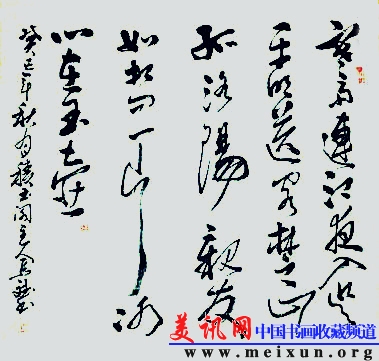 寒雨連江夜入吳
平明送客楚山
孤洛陽親友
如相問一片冰
心在玉壺
癸巳年秋月積書閣主人
美讯网中国书画收藏频道
www.meixun.org